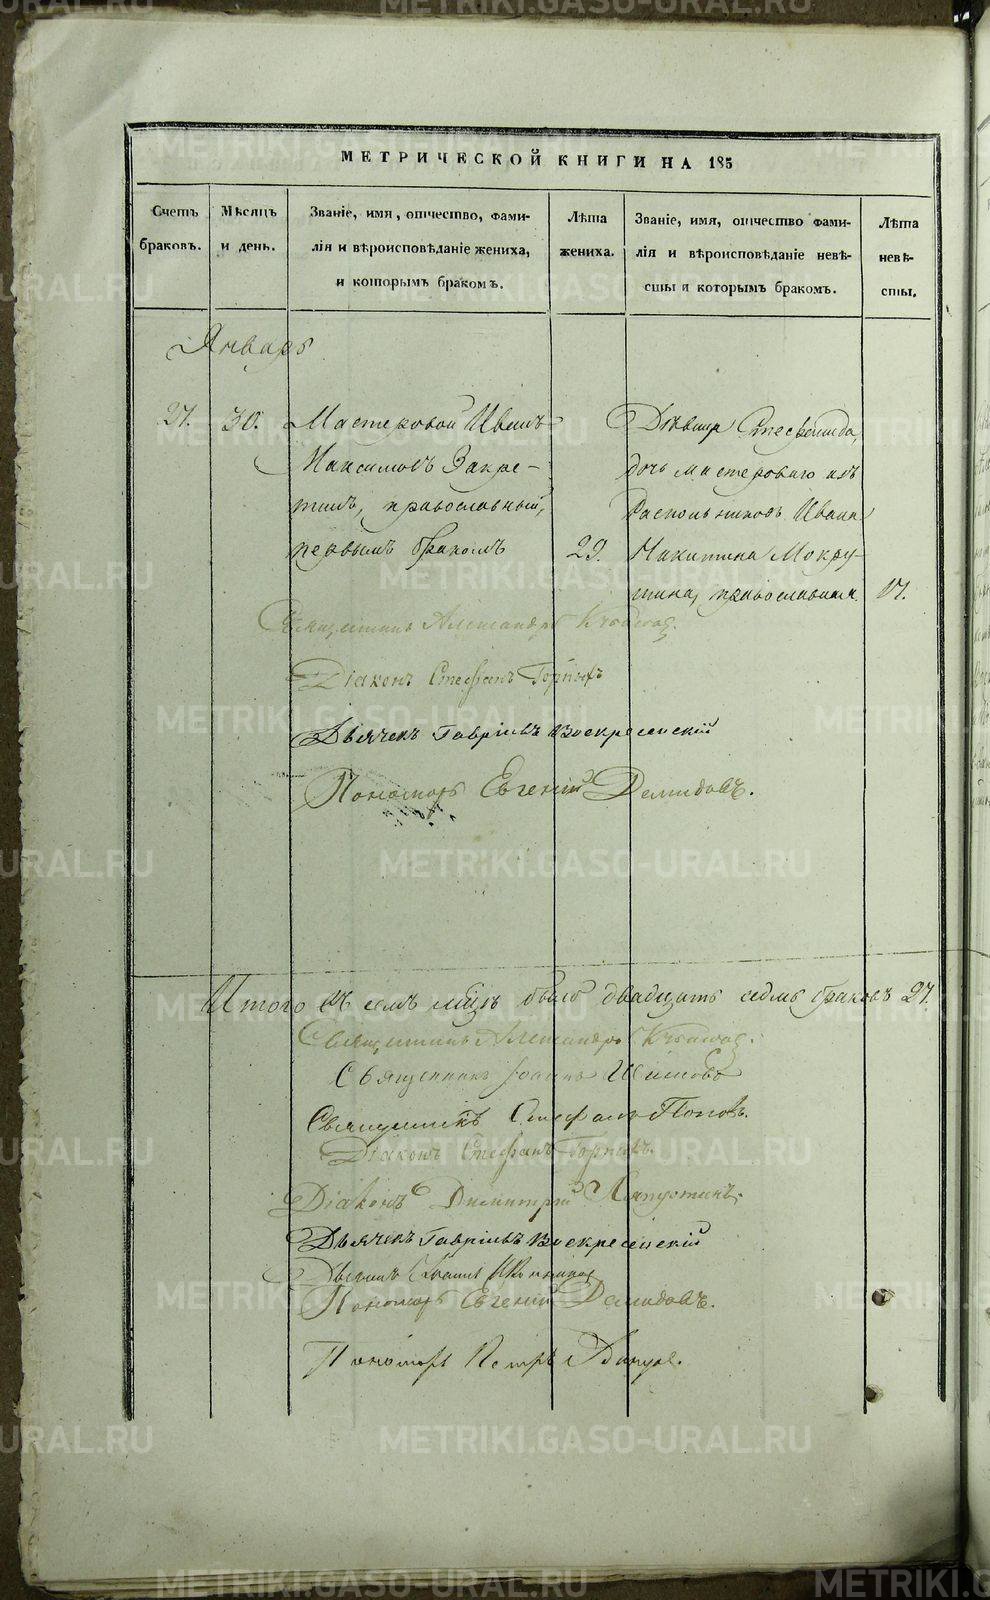 МЕТРИЧЕСКОЙ КНИГИ НА 185
Счетъ браковъ.
Мѣсяцъ и день.
Званіе, имя, отчество, фами-
лія и вѣроисповѣданіе жениха,
и которымъ бракомъ.
Лѣта жениха.
Званіе, имя, отчество фами-
лія и вѣроисповѣданіе невѣ-
сты и которымъ бракомъ.
Лѣта невѣ-
сты.
Январь
27. 30.
Мастеровой Иванъ
Максимовъ Закре-
тинъ, православный,
первымъ бракомъ
29.
Дѣвица
дочь мастероваго изъ
раскольниковъ Ивана
Никитина Мокру-
шина, православная
17.
Священникъ Александръ
Діаконъ Стефанъ
Дьячекъ Гавріилъ Воскресенскій
Пономарь Евгеній Демидовъ.
Итого въ семъ мѣсяцѣ было двадцать седмь браковъ 27.
Священникъ Александръ
Священникъ Іоаннъ
Священникъ Стефанъ Поповъ.
Діаконъ Стефанъ
Діаконъ Димитрій Ляпустинъ.
Дьячекъ Гавріилъ Воскресенскій
Дьячекъ
Пономарь Евгеній Демидовъ.
Пономарь Петръ
METRIKI.GASO-URAL.RU